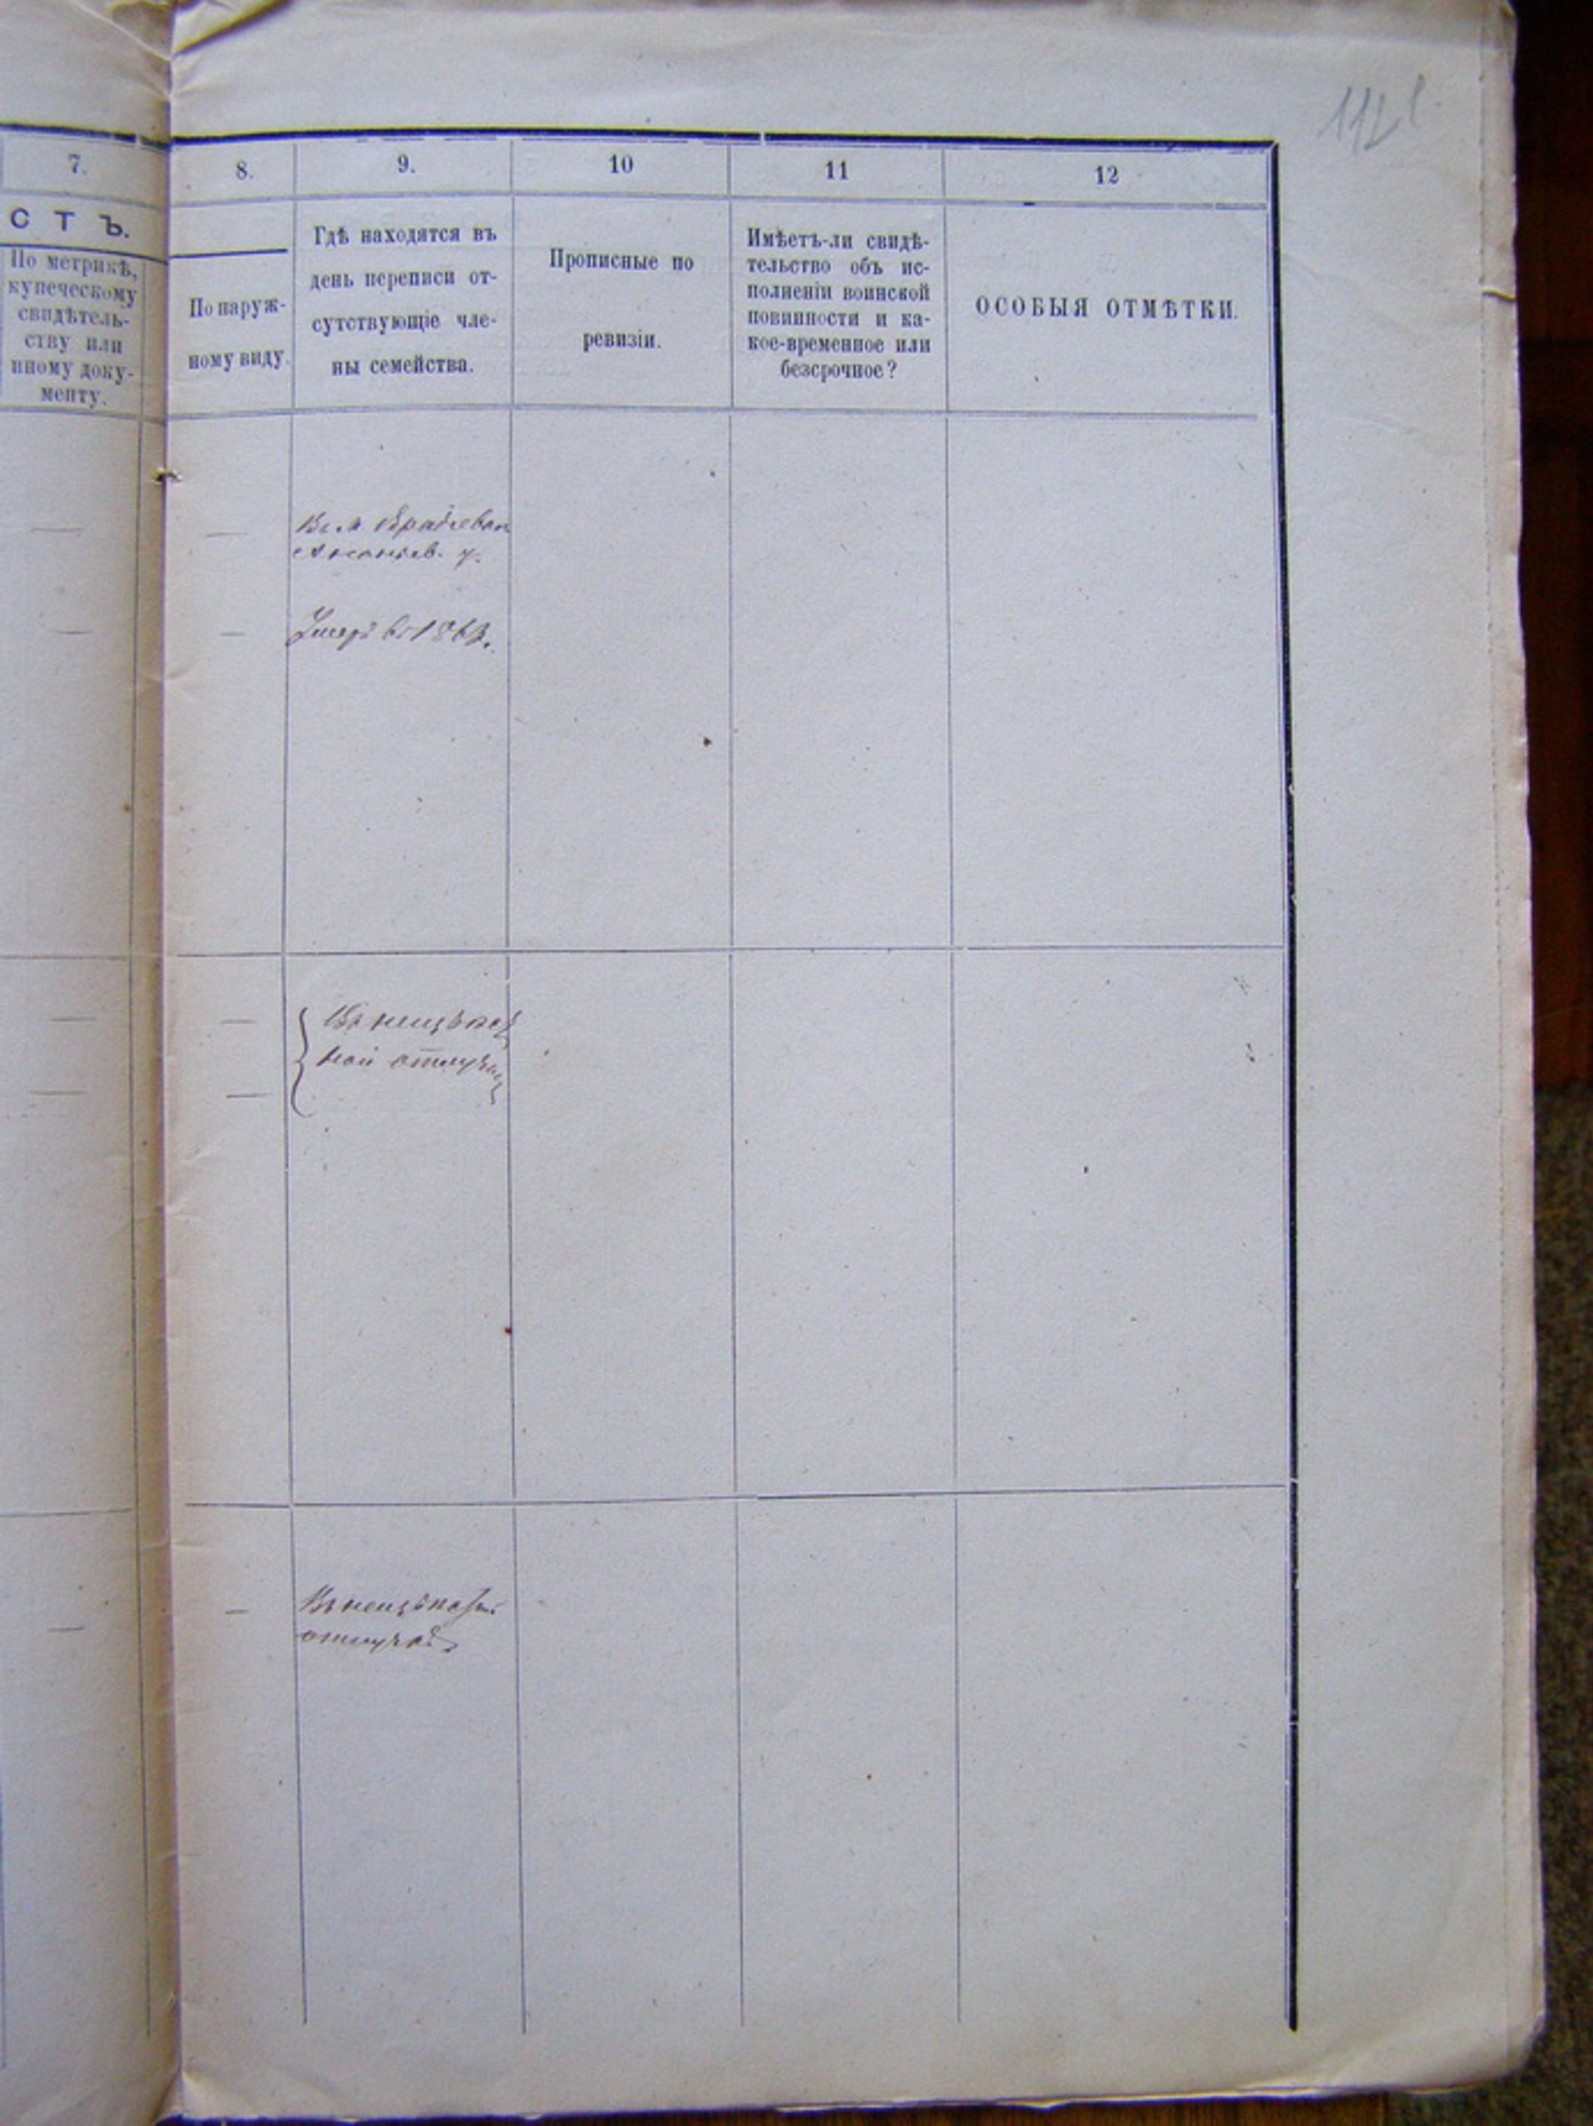 112
7.
8.
9.
10
11
12
СТЪ.
По метрикѣ,
купеческому
свидѣтель-
ству или
иному доку-
менту.
По наруж-
ному виду.
Гдѣ находятся въ
день переписи от-
сутствующіе чле-
ны семейства.
Прописные по
ревизіи.
Имѣетъ-ли свидѣ-
тельство объ ис-
полненіи воинской
повинности и ка-
кое-временное или
безсрочное?
ОСОБЫЯ ОТМѢТКИ.
Въ м.
у.
Умеръ въ 186
Въ неизвѣст
ной отлучкѣ
Въ неизвѣстной
отлучкѣ